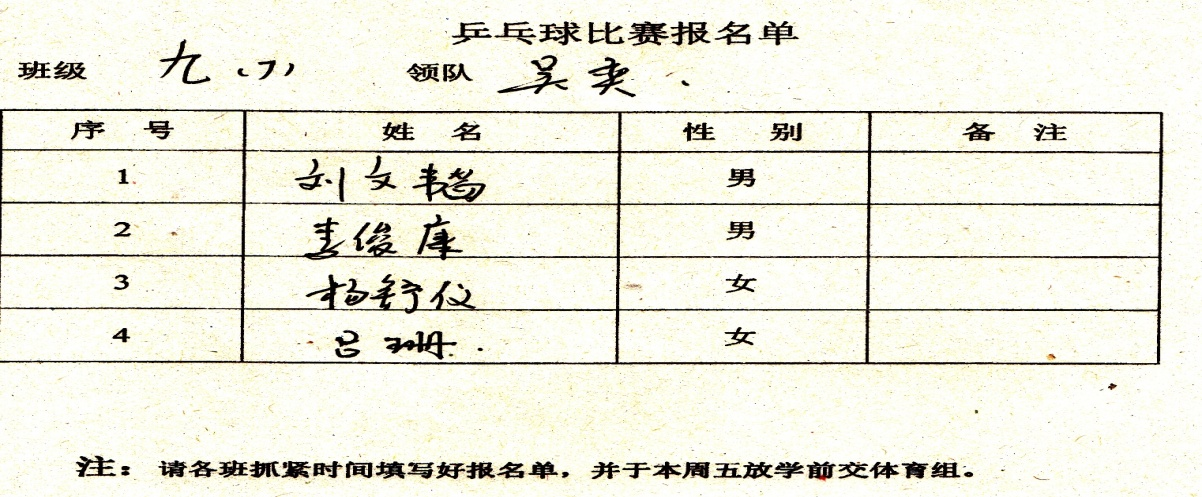 乒乓球比赛报名单
班级 九（7） 领队 吴奕
序号 姓名 性别 备注
1 刘文韬 男
2 俊康 男
3 杨舒仪 女
4 吕珊 女
注：请各班抓紧时间填写好报名单，并于本周五放学前交体育组。